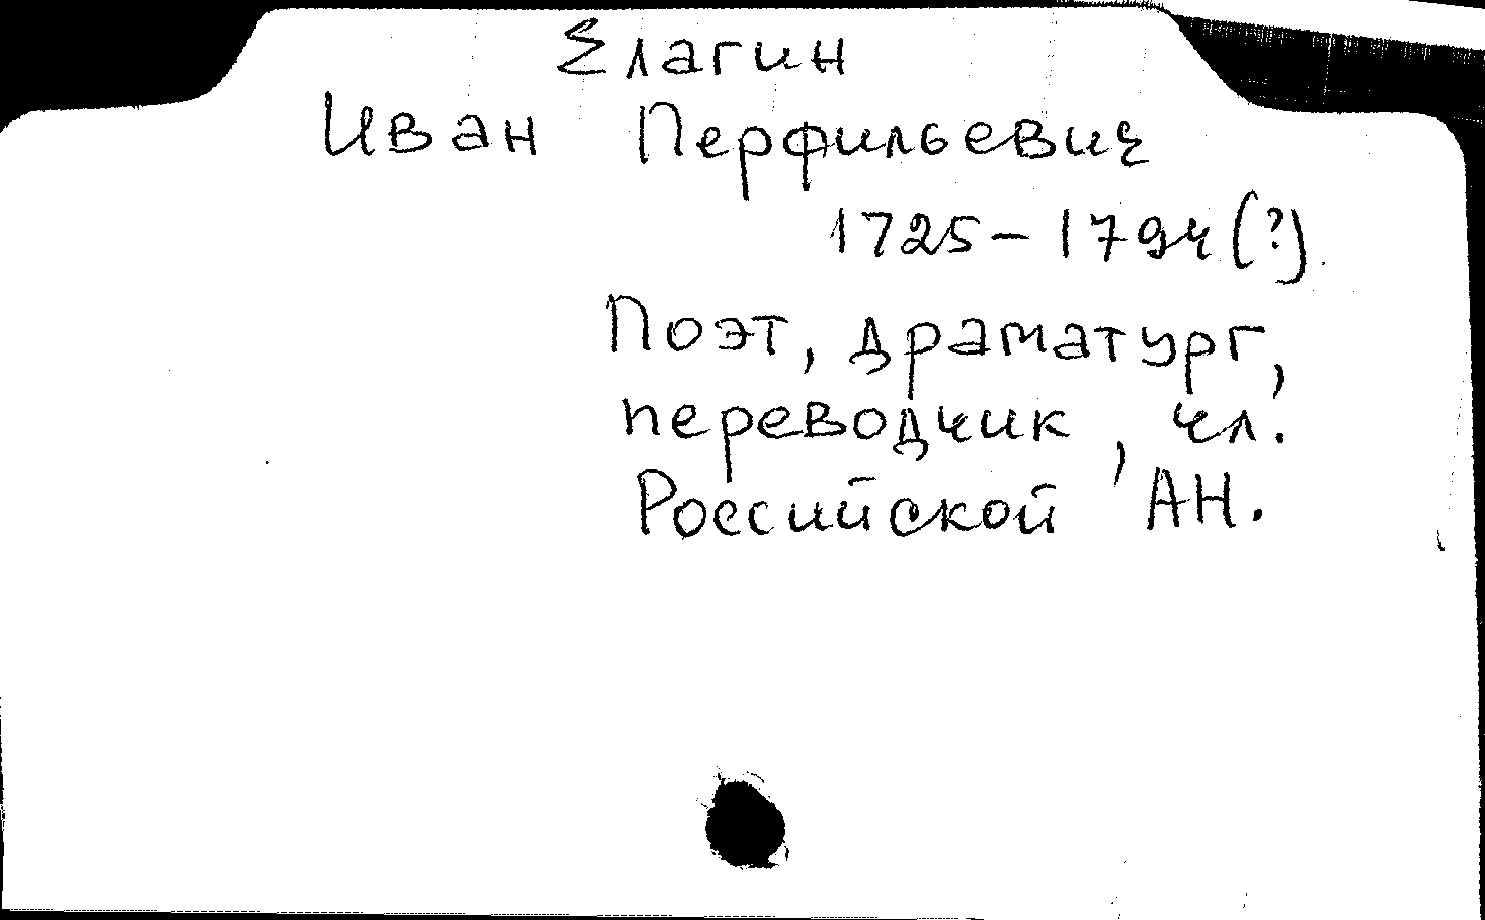 Елагин
Иван Перфильевич
1725-1794(?)
Поэт, драматург,
переводчик, чл.
Российской АН.